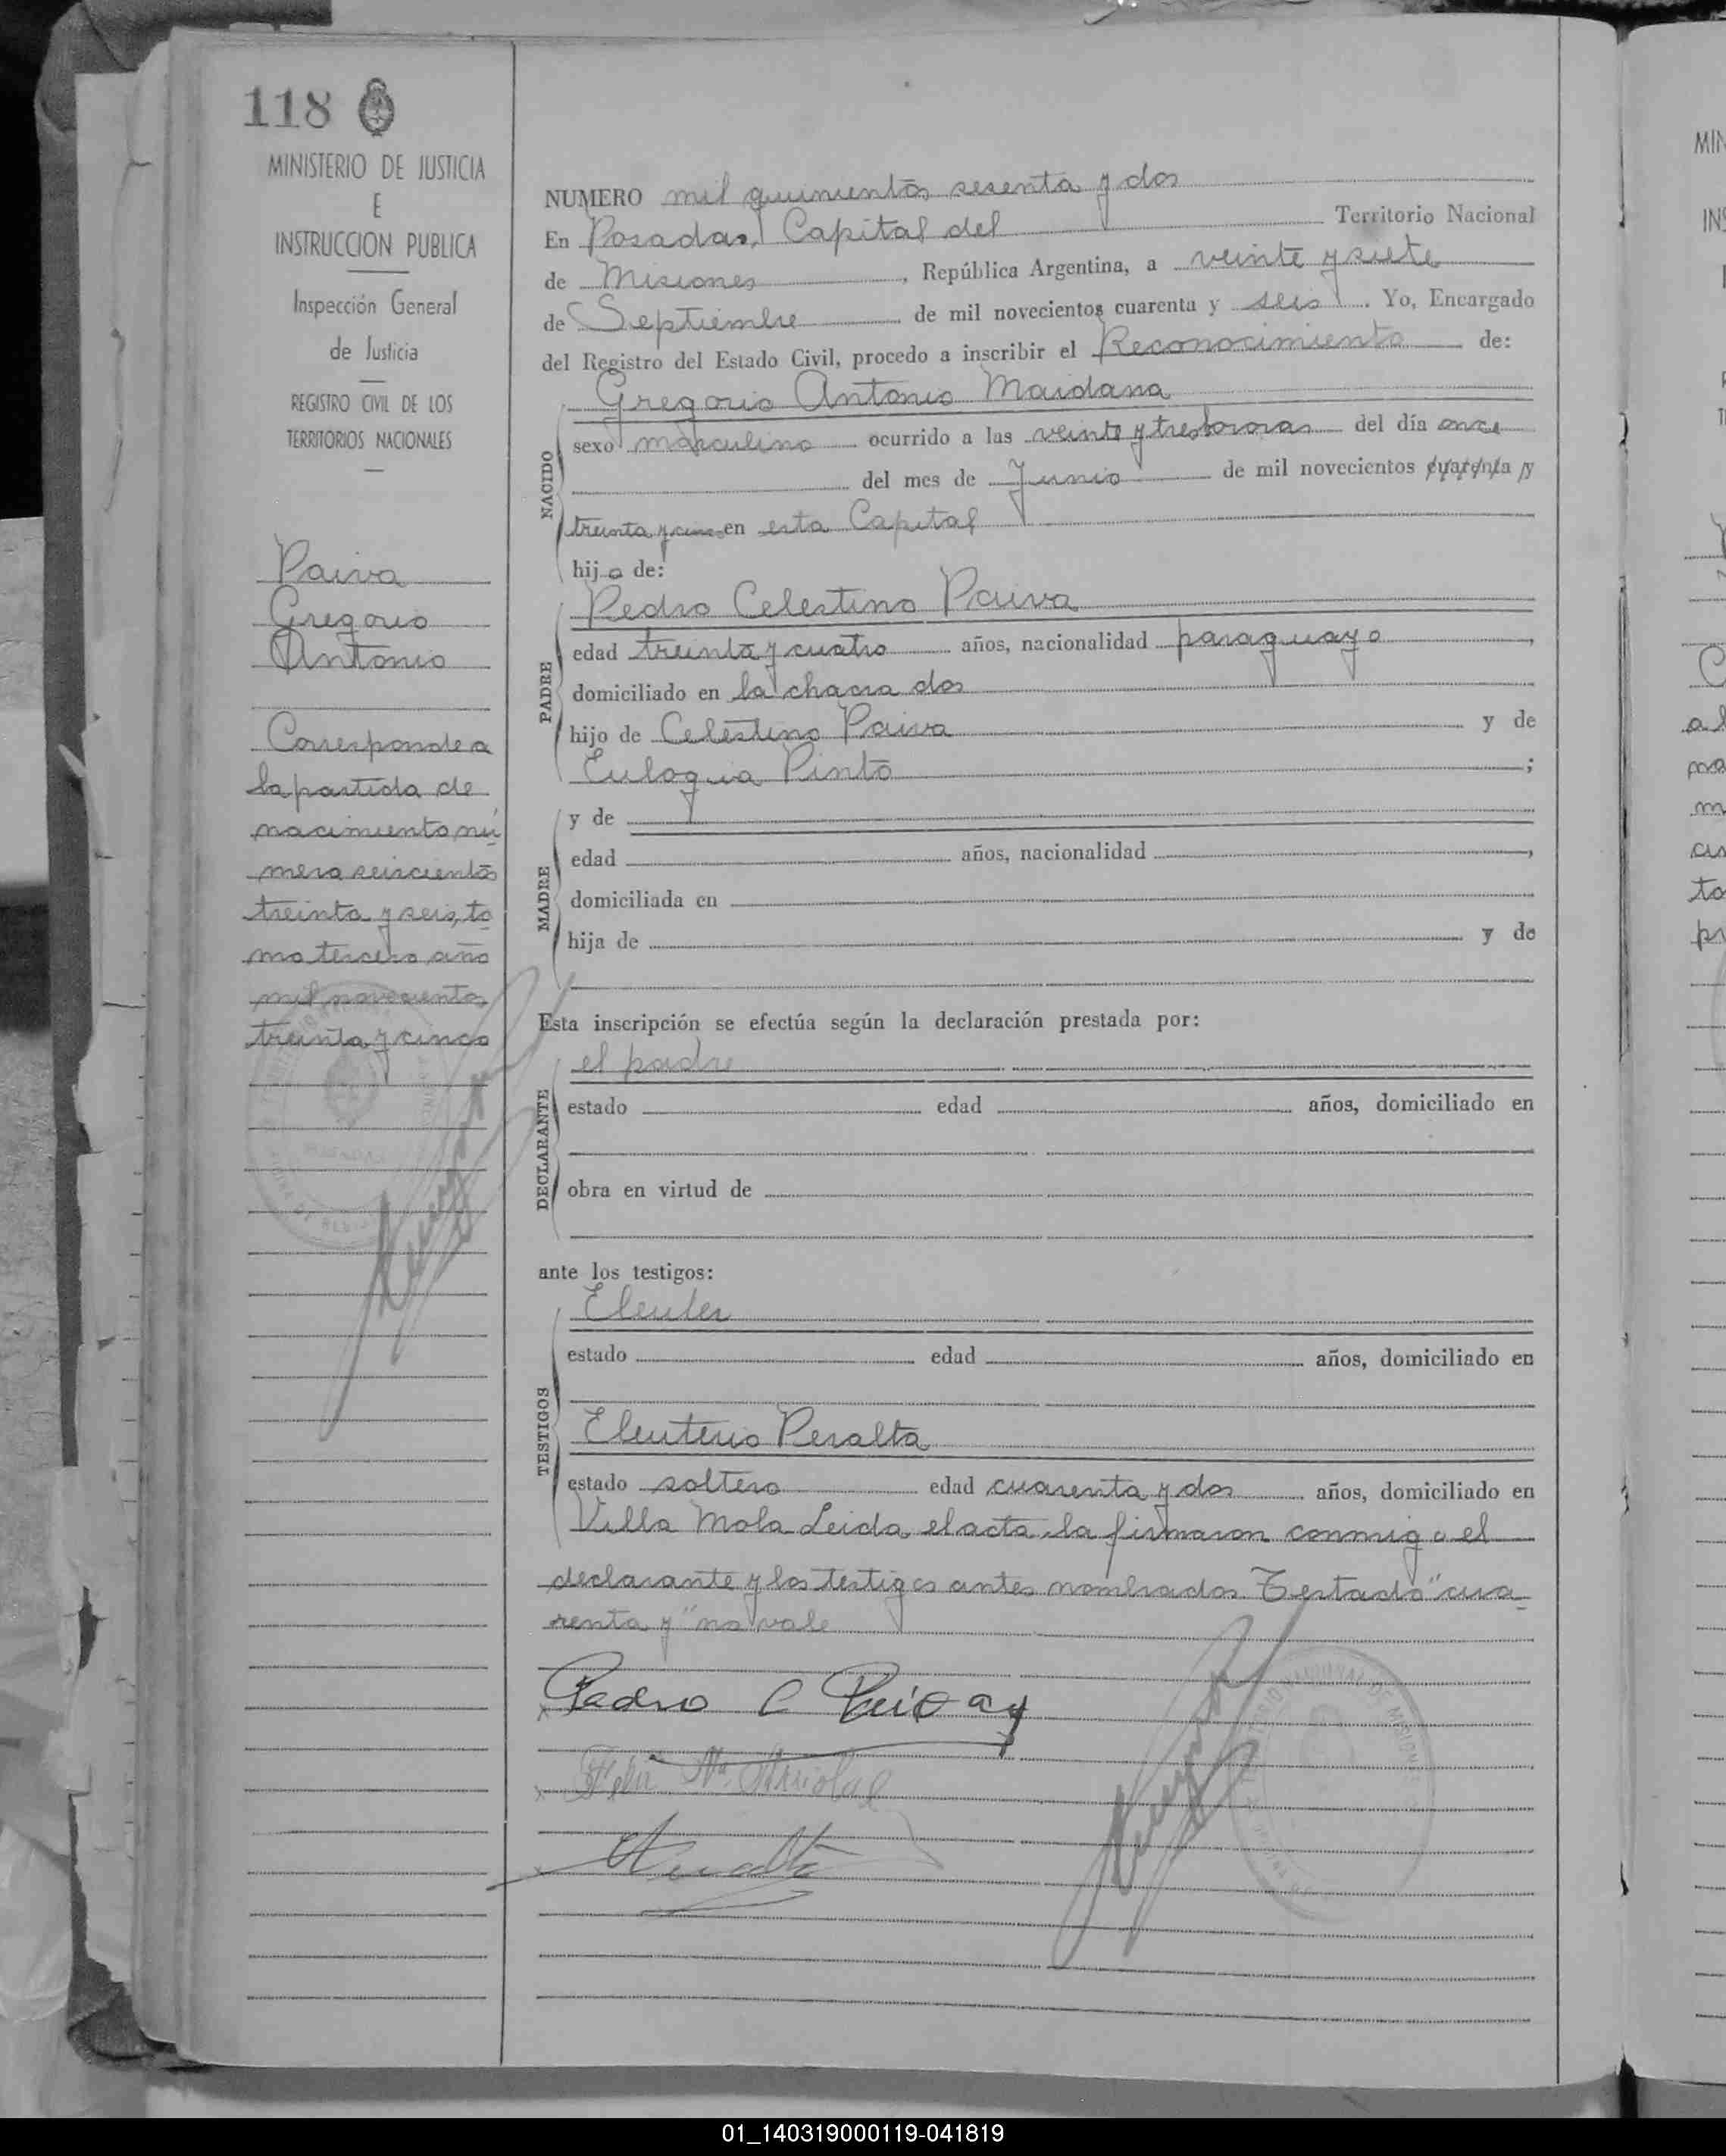 118
MINISTERIO DE JUSTICIA
E
INSTRUCCION PUBLICA
Inspección General
de Justicia
REGISTRO CIVIL DE LOS
TERRITORIOS NACIONALES
Paiva
Gregorio
Antonio
Corresponde a
la partida de
nacimiento nú
mero seiscientos
treinta y seis, to
mo tercero año
mil novecientos
treinta y cinco
NUMERO mil quinientos sesenta y dos
En Posadas, Capital del Territorio Nacional
de Misiones, República Argentina, a veinte y siete
de Septiembre de mil novecientos cuarenta y seis. Yo, Encargado
del Registro del Estado Civil, procedo a inscribir el Reconocimiento de:
NACIDO
Gregorio Antonio Maidana
sexo masculino ocurrido a las veinte y tres horas del día once
del mes de Junio de mil novecientos cuarenta y
treinta y cinco en esta Capital
hijo de:
PADRE
Pedro Celestino Paiva
edad treinta y cuatro años, nacionalidad paraguayo,
domiciliado en la chacra dos
hijo de Celestino Paiva y de
Eulogia Pinto;
MADRE
y de
edad años, nacionalidad,
domiciliada en
hija de y de
Esta inscripción se efectúa según la declaración prestada por:
DECLARANTE
el padre
estado edad años, domiciliado en
obra en virtud de
ante los testigos:
TESTIGOS
Eleuter
estado edad años, domiciliado en
Eleuterio Peralta
estado soltero edad cuarenta y dos años, domiciliado en
Villa Mola Leida el acta la firmaron conmigo el
declarante y los testigos antes nombrados. Testado "cua
renta y" no vale
Pedro C Paiva
MIN
INS
01_140319000119-041819